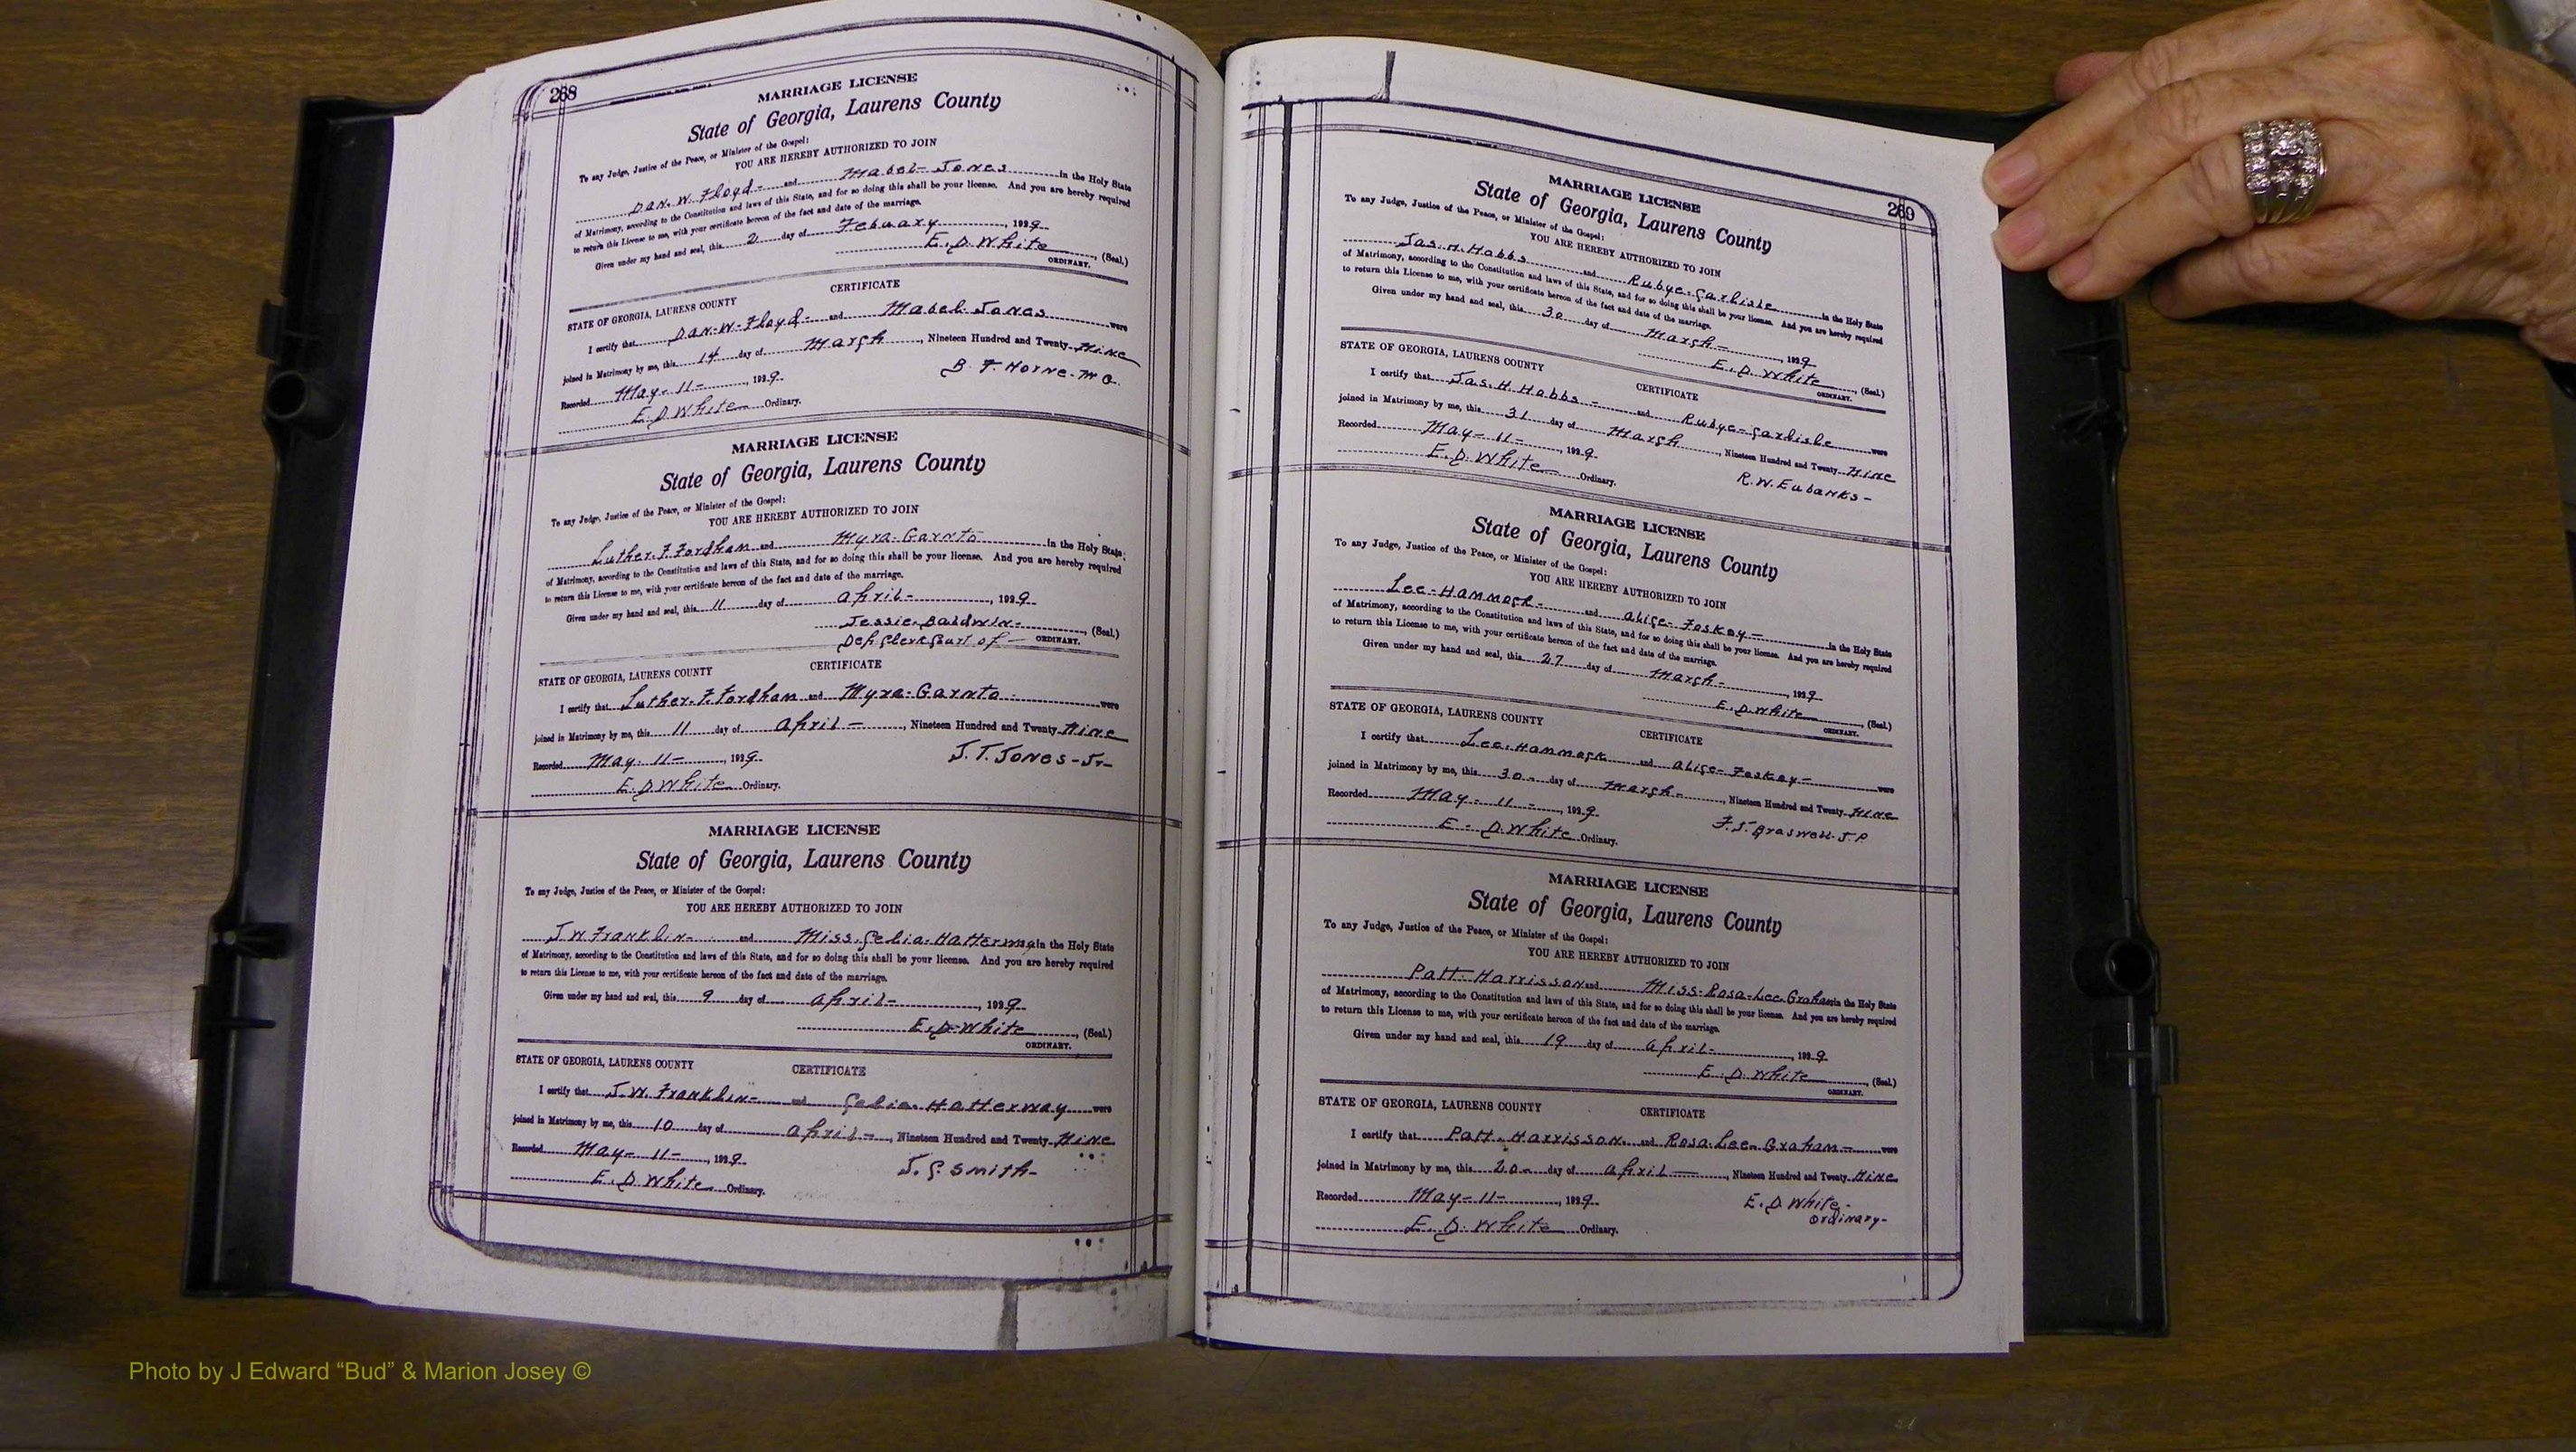 268
MARRIAGE LICENSE
State of Georgia, Laurens County
To any Judge, Justice of the Peace, or Minister of the Gospel:
YOU ARE HEREBY AUTHORIZED TO JOIN
Dan. W. Floyd- and Mabel Jones in the Holy State
of Matrimony, according to the Constitution and laws of this State, and for so doing this shall be your license. And you are hereby required
to return this License to me, with your certificate hereon of the fact and date of the marriage.
Given under my hand and seal, this 2 day of Febuary, 1929
E. D. White (Seal.)
ORDINARY.
CERTIFICATE
STATE OF GEORGIA, LAURENS COUNTY
I certify that Dan-W-Floyd- and Mabel Jones were
joined in Matrimony by me, this 14 day of March, Nineteen Hundred and Twenty Nine
Recorded May-11-, 1929. B. F. Horne-M G.
E. D White Ordinary.
MARRIAGE LICENSE
State of Georgia, Laurens County
To any Judge, Justice of the Peace, or Minister of the Gospel:
YOU ARE HEREBY AUTHORIZED TO JOIN
Luther. F. Fordham and Myra-Garnto in the Holy State
of Matrimony, according to the Constitution and laws of this State, and for so doing this shall be your license. And you are hereby required
to return this License to me, with your certificate hereon of the fact and date of the marriage.
Given under my hand and seal, this 11 day of April-, 1929.
Jessie Baldwin- (Seal.)
Dep Clerk Court of- ORDINARY.
CERTIFICATE
STATE OF GEORGIA, LAURENS COUNTY
I certify that Luther. F. Fordham and Myra-Garnto were
joined in Matrimony by me, this 11 day of April-, Nineteen Hundred and Twenty Nine
Recorded May-11-, 1929. J. T. Jones-Jr-
E. D White Ordinary.
MARRIAGE LICENSE
State of Georgia, Laurens County
To any Judge, Justice of the Peace, or Minister of the Gospel:
YOU ARE HEREBY AUTHORIZED TO JOIN
J W Franklin- and Miss. Celia. in the Holy State
of Matrimony, according to the Constitution and laws of this State, and for so doing this shall be your license. And you are hereby required
to return this License to me, with your certificate hereon of the fact and date of the marriage.
Given under my hand and seal, this 9 day of April-, 1929.
E. D. White (Seal)
ORDINARY.
STATE OF GEORGIA, LAURENS COUNTY CERTIFICATE
I certify that J. W. Franklin- and Celia. Hatterway were
joined in Matrimony by me, this 10 day of April-, Nineteen Hundred and Twenty Nine
Recorded May-11-, 1929. J. C. Smith-
E. D. White Ordinary.
269
MARRIAGE LICENSE
State of Georgia, Laurens County
To any Judge, Justice of the Peace, or Minister of the Gospel:
YOU ARE HEREBY AUTHORIZED TO JOIN
Jas. H. Hobbs and Rubye-Carlisle in the Holy State
of Matrimony, according to the Constitution and laws of this State, and for so doing this shall be your license. And you are hereby required
to return this License to me, with your certificate hereon of the fact and date of the marriage.
Given under my hand and seal, this 30 day of March-, 1929
E. D. White (Seal.)
ORDINARY.
STATE OF GEORGIA, LAURENS COUNTY CERTIFICATE
I certify that Jas. H. Hobbs- and Rubye-Carlisle were
joined in Matrimony by me, this 31 day of March, Nineteen Hundred and Twenty Nine
Recorded May-11-, 1929. R. W. Eubanks-
E. D. White Ordinary.
MARRIAGE LICENSE
State of Georgia, Laurens County
To any Judge, Justice of the Peace, or Minister of the Gospel:
YOU ARE HEREBY AUTHORIZED TO JOIN
Lee-Hammock- and Alice-Foskey- in the Holy State
of Matrimony, according to the Constitution and laws of this State, and for so doing this shall be your license. And you are hereby required
to return this License to me, with your certificate hereon of the fact and date of the marriage.
Given under my hand and seal, this 27 day of March-, 1929
E. D. White (Seal.)
ORDINARY.
STATE OF GEORGIA, LAURENS COUNTY CERTIFICATE
I certify that Lee. Hammock and Alice-Foskey- were
joined in Matrimony by me, this 30- day of March-, Nineteen Hundred and Twenty Nine
Recorded May-11-, 1929. Braswell-J.P.
E-D. White Ordinary.
MARRIAGE LICENSE
State of Georgia, Laurens County
To any Judge, Justice of the Peace, or Minister of the Gospel:
YOU ARE HEREBY AUTHORIZED TO JOIN
Patt-Harrisson and Miss-Rosa-Lee Graham in the Holy State
of Matrimony, according to the Constitution and laws of this State, and for so doing this shall be your license. And you are hereby required
to return this License to me, with your certificate hereon of the fact and date of the marriage.
Given under my hand and seal, this 19 day of April-, 1929
E. D. White (Seal.)
ORDINARY.
STATE OF GEORGIA, LAURENS COUNTY CERTIFICATE
I certify that Patt-Harrisson. and Rosa. Lee. Graham- were
joined in Matrimony by me, this 20- day of April-, Nineteen Hundred and Twenty Nine
Recorded May-11-, 1929. E. D White-
Ordinary-
E. D. White Ordinary.
Photo by J Edward “Bud” & Marion Josey ©